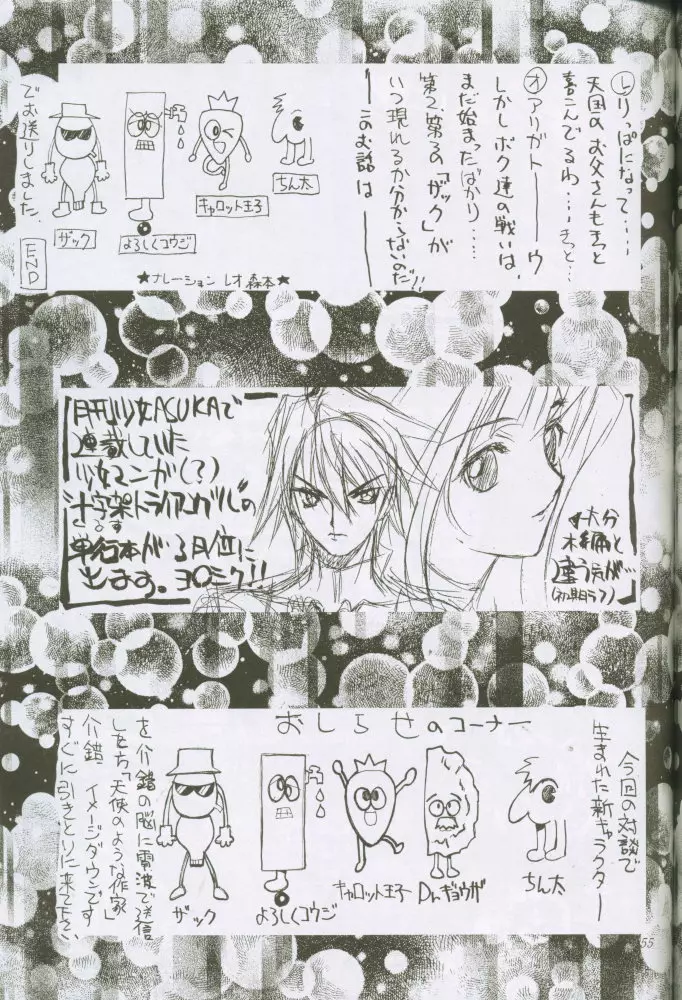 し り、ぱになって……
天国のお父さんもきっと
喜こんでるわ……きっと…
オ アリガトーーーウ
しかしボク達の戦いは、
まだ始まったばかり……
第2、第3の「ザック」が
いつ現れるか分からないのだ!!
――このお話は――
ちん太
キャロット王子
よろしくコウジ
ザック
でお送りしました。
END
★ナレーション レオ森本★
月刊少女ASUKAで
連載していた
少女マンガ(?)
十字架トライアングルの
単行本が3月位に
出ます。ヨロシク!!
大分
本編と
違う気が…
(初期ラフ)
おしらせのコーナー
今回の対談で
生まれた新キャラクター
ちん太
Dr.ギョウザ
キャロット王子
よろしくコウジ
ザック
を介錯の脳に電波で送信
した方「天使のような作家
介錯」イメージダウンです
すぐに引きとりに来て下さい、
55